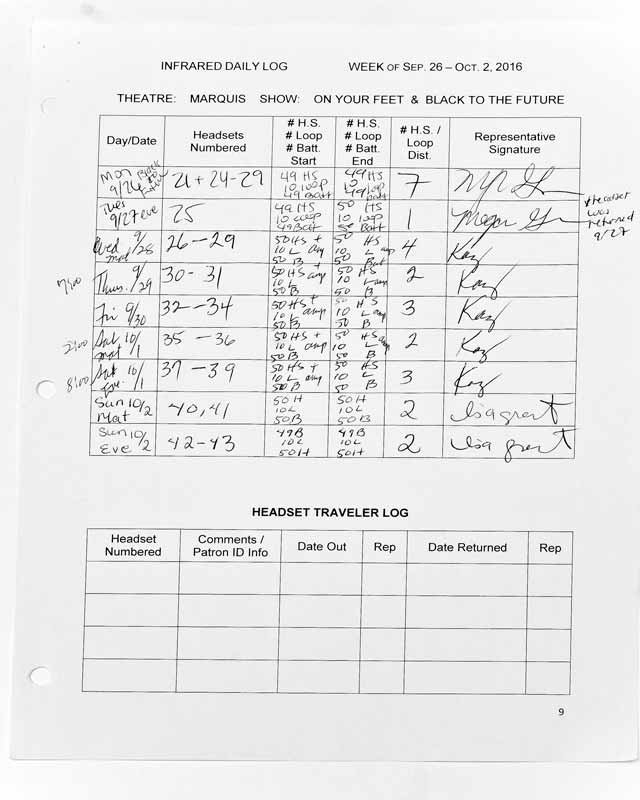 INFRARED DAILY LOG WEEK OF SEP. 26 – OCT. 2, 2016
THEATRE: MARQUIS SHOW: ON YOUR FEET & BLACK TO THE FUTURE
Day/Date Headsets Numbered # H.S. # Loop # Batt. Start # H.S. # Loop # Batt. End # H.S. / Loop Dist. Representative Signature
Mon 9/26 Black to Future 21 + 24-29 49 HS 10 loop 49 Batt 49 HS 10 loop 49 Batt 7
Headset was returned 9/27
Tues 9/27 eve 25 49 HS 10 loop 49 Batt 50 HS 10 loop 50 Batt 1 Megan
Wed 9/28 mat 26-29 50 HS + 10 L amp 50 B 50 HS 10 L amp 50 Bat 4 Kaz
7:00 Thurs. 9/29 30-31 50 HS + amp 10 L 50 B 50 HS amp 10 L 50 B 2 Kaz
Fri 9/30 32-34 50 HS + 10 L amp 50 B 50 HS 10 L 50 B 3 Kaz
2:00 Sat 10/1 mat 35-36 50 HS + 10 L amp 50 B 50 HS amp 10 L 50 B 2 Kaz
8:00 Sat 10/1 Eve 37-39 50 HS + 10 L amp 50 B 50 HS 10 L amp 50 B 3 Kaz
Sun 10/2 Mat 40, 41 50 H 10 L 50 B 50 H 10 L 50 B 2 Lisa Grant
Sun 10/2 Eve 42-43 49B 10L 50H 49B 10L 50H 2 Lisa Grant
HEADSET TRAVELER LOG
Headset Numbered Comments / Patron ID Info Date Out Rep Date Returned Rep
9